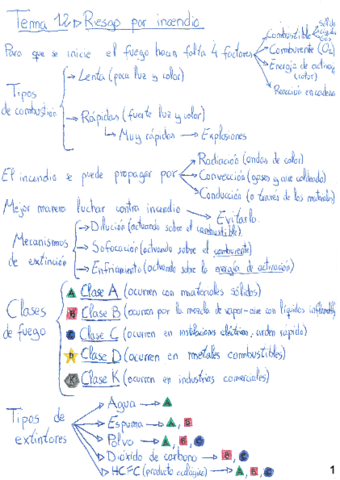 Tema 12 → Riesgo por incendio
Para que se inicie el fuego hacen falta 4 factores
Combustible
Comburente (O₂)
Energía de activación (calor)
Reacción en cadena
Tipos de combustión
Lenta (poca luz y calor)
Rápidas (fuerte luz y calor)
Muy rápidas → Explosiones
El incendio se puede propagar por
Radiación (ondas de calor)
Convección (gases y aire caliente)
Conducción (a través de los materiales)
Mejor manera luchar contra incendio → Evitarlo
Mecanismos de extinción
Dilución (actuando sobre el combustible)
Sofocación (actuando sobre el comburente)
Enfriamiento (actuando sobre la energía de activación)
Clases de fuego
A Clase A (ocurren con materiales sólidos)
B Clase B (ocurren por la mezcla de vapor-aire con líquidos inflamables)
C Clase C (ocurren en instalaciones eléctricas, arden rápido)
D Clase D (ocurren en metales combustibles)
K Clase K (ocurren en industrias comerciales)
Tipos de extintores
Agua → A
Espuma → A, B
Polvo → A, B, C
Dióxido de carbono → B, C
HCFC (producto ecológico) → A, B, C
1